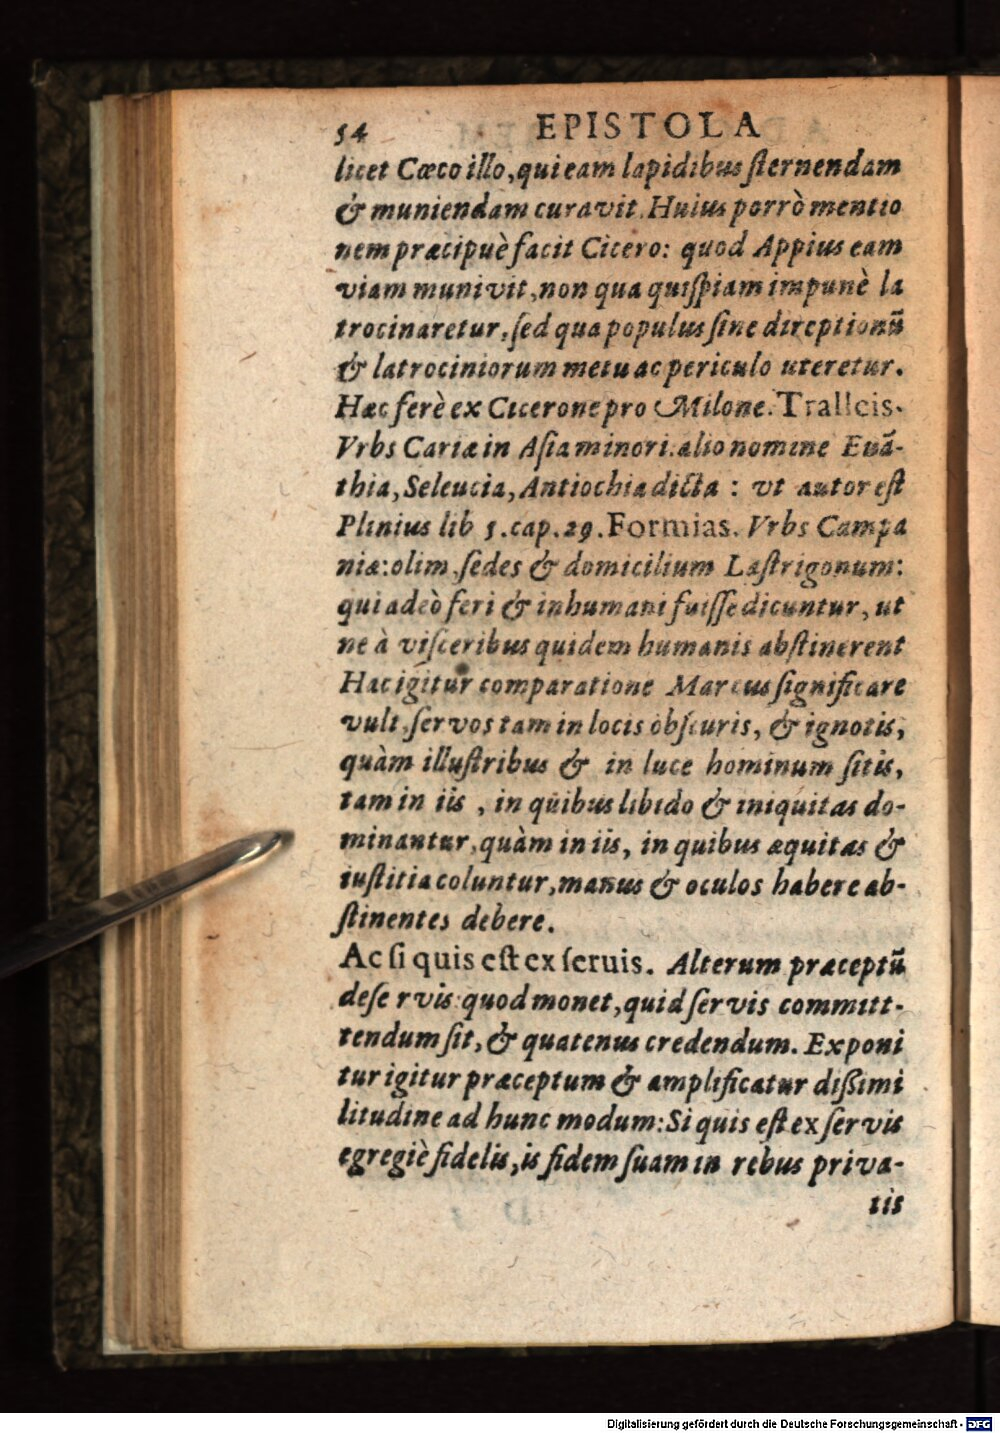 54 EPISTOLA
licet Cæco illo, qui eam lapidibus ſternendam
& muniendam curavit. Huius porrò mentio
nem præcipuè facit Cicero: quod Appius eam
viam munivit, non qua quiſpiam impunè la
trocinaretur, ſed qua populus ſine direptionũ
& latrociniorum metu ac periculo uteretur.
Hæc ferè ex Cicerone pro Milone. Tralleis.
Vrbs Cariæ in Aſia minori. alio nomine Euã-
thia, Seleucia, Antiochia dicta : vt autor eſt
Plinius lib 5. cap. 29. Formias. Vrbs Campa
niæ: olim ſedes & domicilium Læſtrigonum:
qui adeò feri & inhumani fuiſſe dicuntur, ut
ne à viſceribus quidem humanis abſtinerent
Hac igitur comparatione Marcus ſignificare
vult, ſervos tam in locis obſcuris, & ignotis,
quàm illuſtribus & in luce hominum ſitis,
tam in iis , in quibus libido & iniquitas do-
minantur, quàm in iis, in quibus æquitas &
iuſtitia coluntur, manus & oculos habere ab-
ſtinentes debere.
Ac ſi quis eſt ex ſeruis. Alterum præceptũ
de ſervis: quod monet, quid ſervis committ-
tendum ſit, & quatenus credendum. Exponi
tur igitur præceptum & amplificatur diſſimi
litudine ad hunc modum: Si quis eſt ex ſervis
egregiè fidelis, is fidem ſuam in rebus priva-
tis
Digitalisierung gefördert durch die Deutsche Forschungsgemeinschaft - DFG